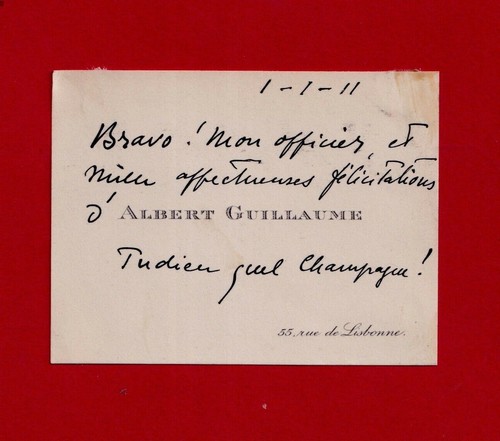 1-1-11
Bravo ! Mon officier, et
mille affectueuses félicitations
d' ALBERT GUILLAUME
Tudieu quel Champagne !
55, rue de Lisbonne.